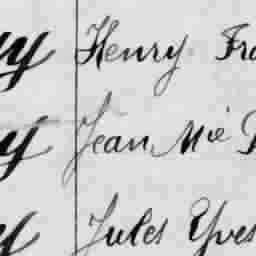 y Henry Fra
y Jean Mie
y Jules Yves